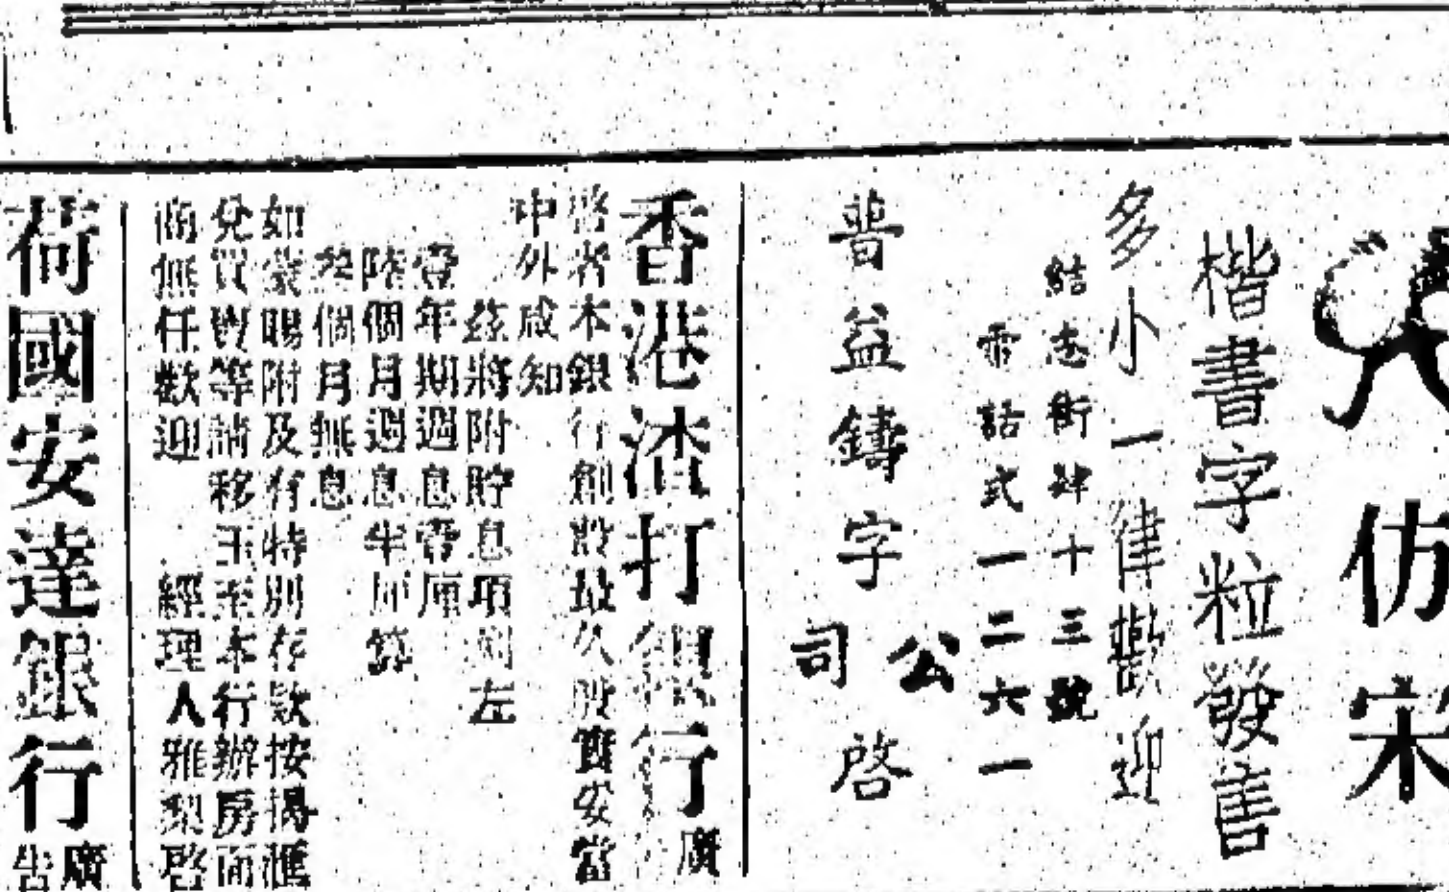 仿宋
楷書字粒發售
多小一律歡迎
結志街肆十三號
電話式一二六一
普益鑄字公司啓
香港渣打銀行廣
啓者本銀行創設最久殷實妥當
中外咸知
茲將附貯息項列左
壹年期週息壹厘
陸個月週息半厘算
叁個月無息
如蒙賜附及有特別存欵按揭滙
兌買賣等請移玉至本行辦房面
商無任歡迎　經理人雅梨啓
荷國安達銀行廣告